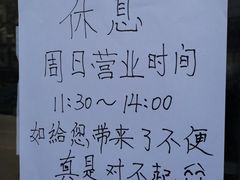 休息
周日营业时间
11:30～14:00
如给您带来了不便
真是对不起